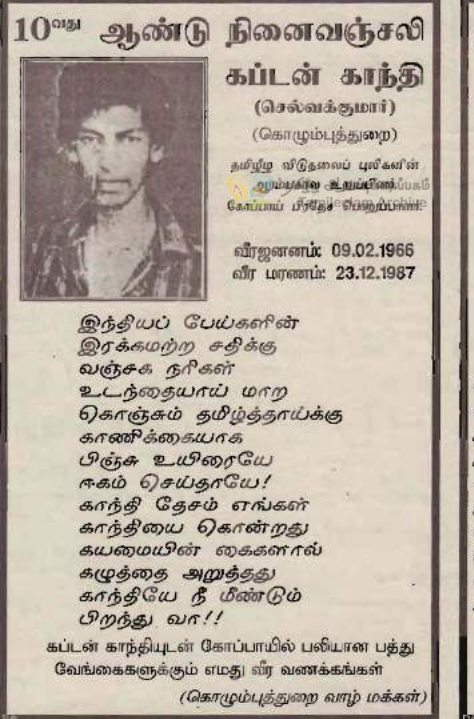 10வது ஆண்டு நினைவஞ்சலி
கப்டன் காந்தி
(செல்வக்குமார்)
(கொழும்புத்துறை)
தமிழீழ விடுதலைப் புலிகளின்
ஆரம்பகால உறுப்பினர்
கோப்பாய் பிரதேச பொறுப்பாளர்
Tamileelam Archive
வீரஜனனம்: 09.02.1966
வீர மரணம்: 23.12.1987
இந்தியப் பேய்களின்
இரக்கமற்ற சதிக்கு
வஞ்சக நரிகள்
உடந்தையாய் மாற
கொஞ்சும் தமிழ்த்தாய்க்கு
காணிக்கையாக
பிஞ்சு உயிரையே
ஈகம் செய்தாயே!
காந்தி தேசம் எங்கள்
காந்தியை கொன்றது
கயமையின் கைகளால்
கழுத்தை அறுத்தது
காந்தியே நீ மீண்டும்
பிறந்து வா!!
கப்டன் காந்தியுடன் கோப்பாயில் பலியான பத்து
வேங்கைகளுக்கும் எமது வீர வணக்கங்கள்
(கொழும்புத்துறை வாழ் மக்கள்)